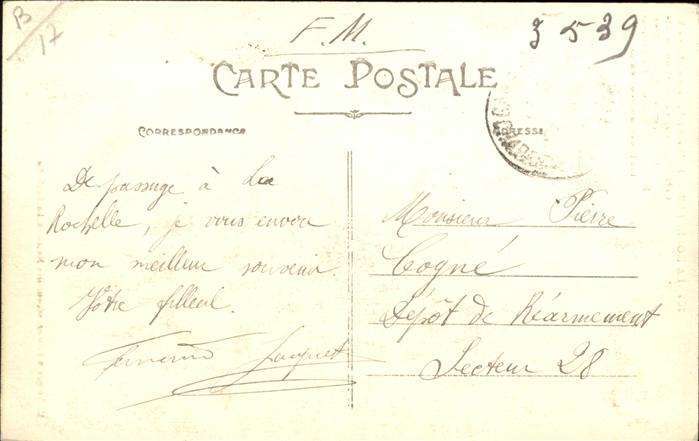 B
17
F.M.
3 539
CARTE POSTALE
CORRESPONDANCE
De passage à La
Rochelle, je vous envoie
mon meilleur souvenir.
Vôtre filleul.
Jacquet
Monsieur Pierre
Cogné
Dépôt de Réarmement
Secteur 28